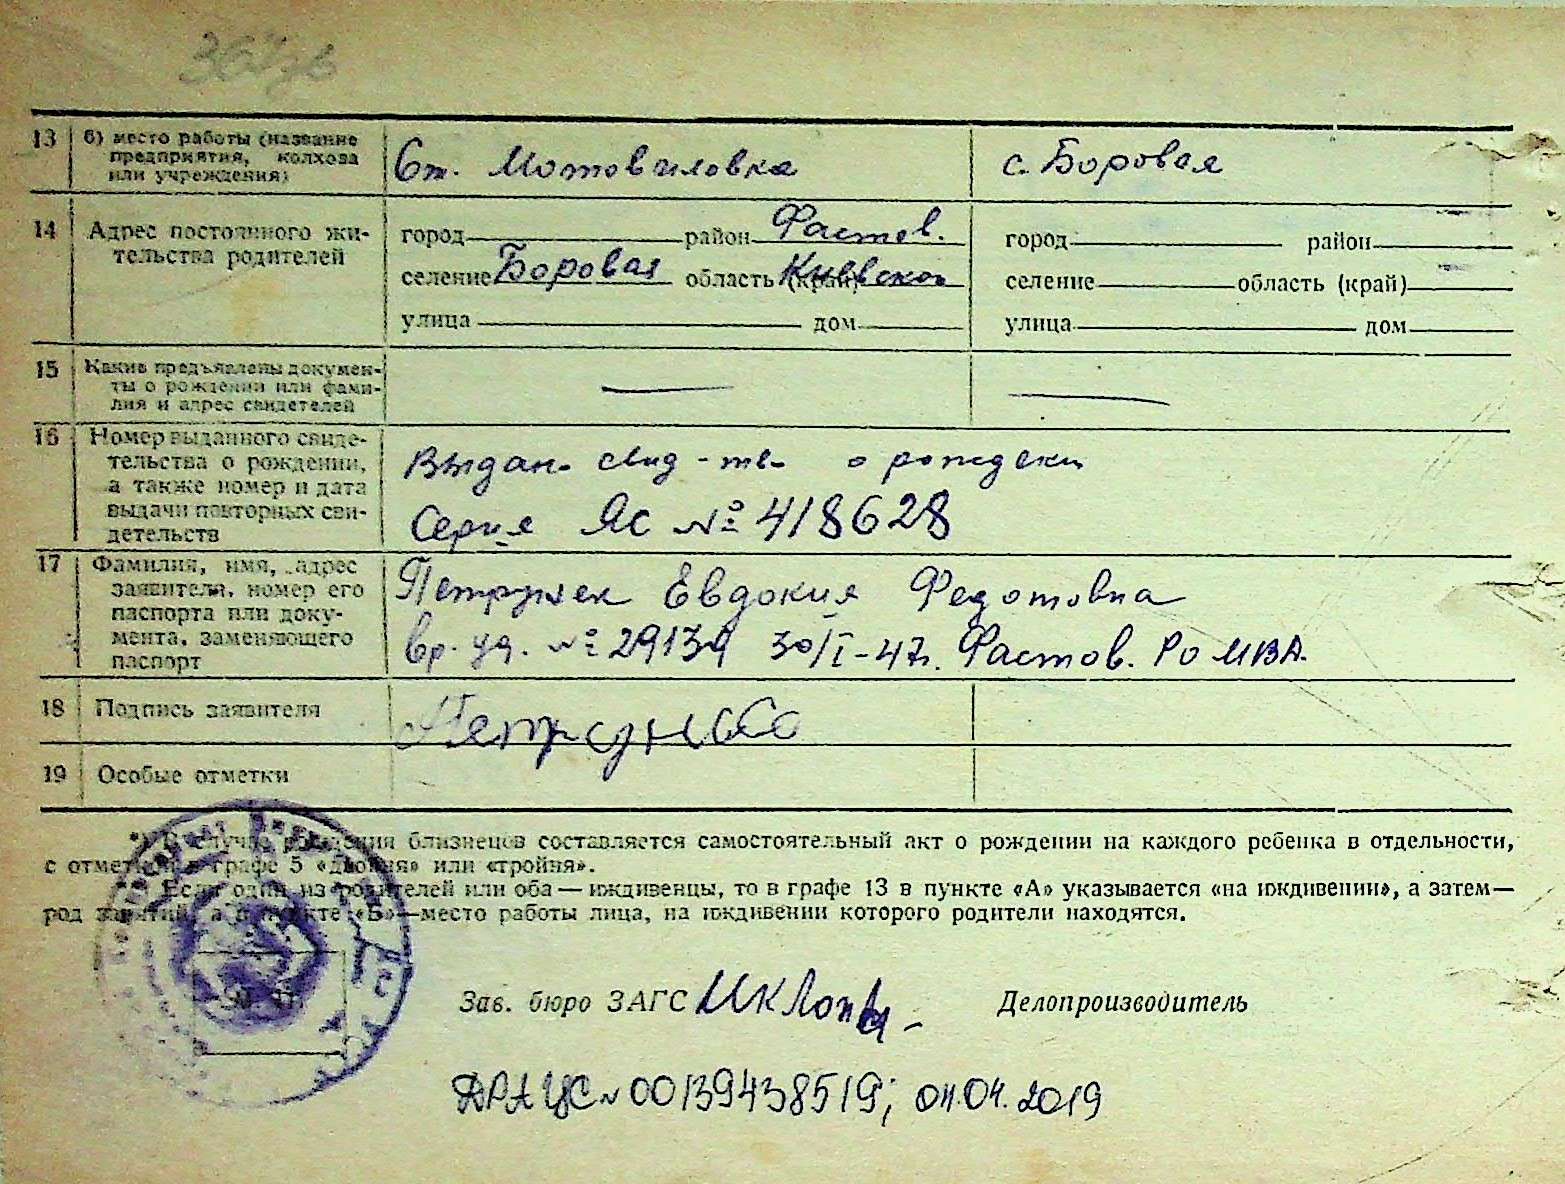 13 б) место работы (название
предприятия, колхоза
или учреждения)
Ст. Мотовиловка
с. Боровая
14 Адрес постоянного жи-
тельства родителей
город район Фастов.
селение Боровая область (край) Киевской
улица дом
город район
селение область (край)
улица дом
15 Какие предъявлены докумен-
ты о рождении или фами-
лия и адрес свидетелей
16 Номер выданного свиде-
тельства о рождении,
а также номер и дата
выдачи повторных сви-
детельств
Выдано свид-тво о рождении
Серия ЯС № 418628
17 Фамилия, имя, адрес
заявителя, номер его
паспорта или доку-
мента, заменяющего
паспорт
Евдокия Федотовна
вр. уд. № 29139 30/I-47г. Фастов. РО МВД.
18 Подпись заявителя
19 Особые отметки
*) В случае рождения близнецов составляется самостоятельный акт о рождении на каждого ребенка в отдельности,
с отметкой в графе 5 «двойня» или «тройня».
Если один из родителей или оба — иждивенцы, то в графе 13 в пункте «А» указывается «на иждивении», а затем —
род занятий, а в пункте «Б» — место работы лица, на иждивении которого родители находятся.
Зав. бюро ЗАГС
Делопроизводитель
ДРАЦС № 00139438519; 04.04.2019